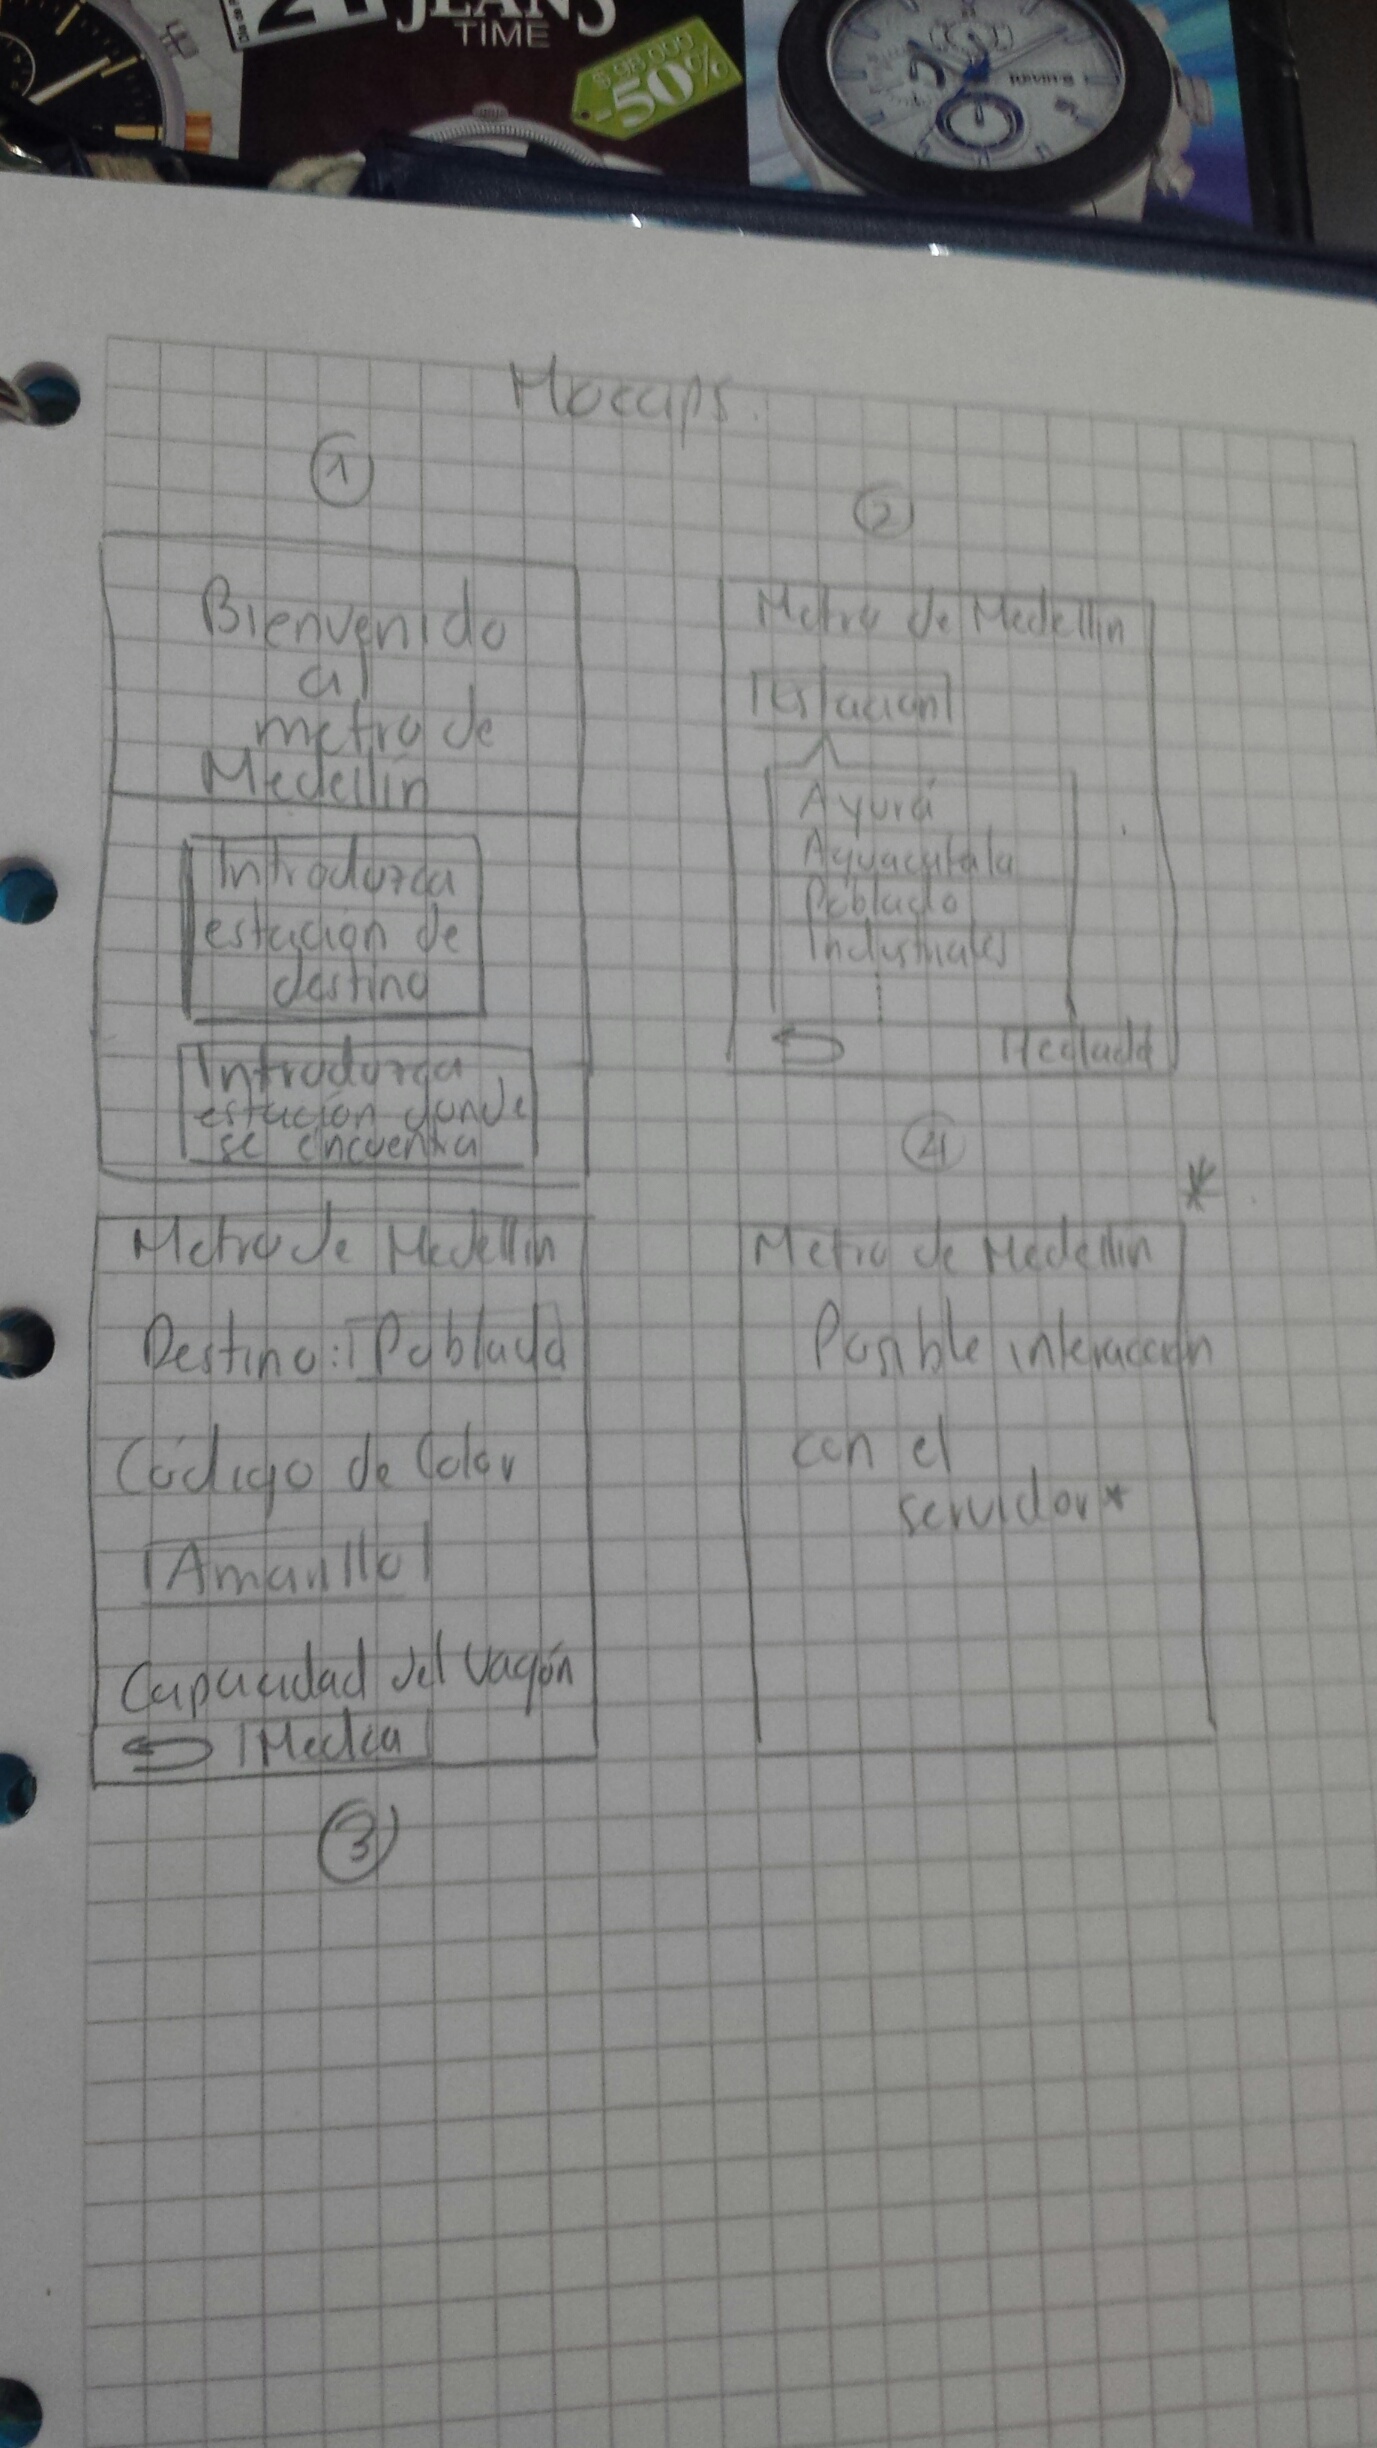 JEANS
TIME
$ 98.000
-50%
Mocups.
1
Bienvenido
al
metro de
Medellín
Introduzca
estación de
destino
Introduzca
estación donde
se encuentra
2
Metro de Medellín
Estación
Ayurá
Aguacatala
Poblado
Industriales
Metro de Medellín
Destino: Poblado
Código de Color
Amarillo
Capacidad del vagón
Media
3
4
*
Metro de Medellín
Posible interacción
con el
servidor*